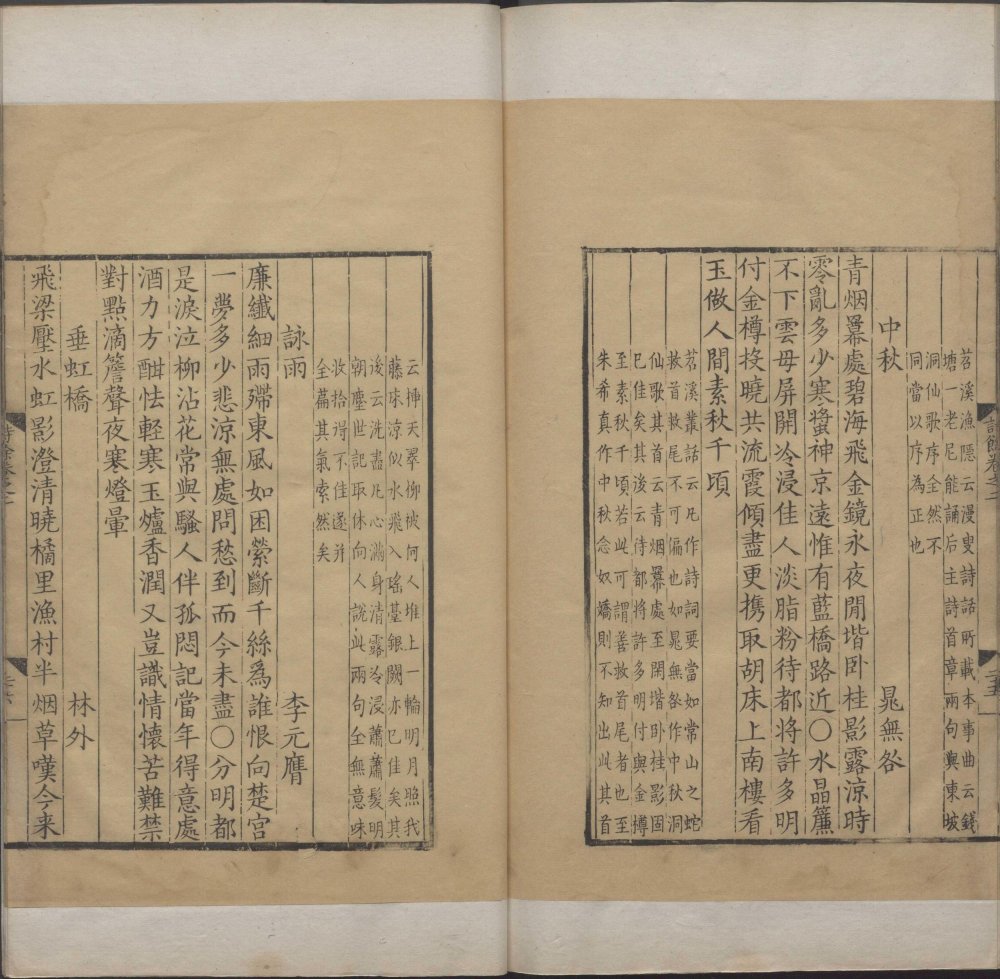 苕溪漁隱云漫叟詩話所載本事曲云錢
塘一老尼能誦后主詩首章兩句與東坡
洞仙歌序全然不
同當以序為正也
中秋 晁無咎
青烟羃處碧海飛金鏡永夜閒堦卧桂影露凉時
零亂多少寒螿神京遠惟有藍橋路近○水晶簾
不下雲母屏開冷浸佳人淡脂粉待都將許多明
付金樽投曉共流霞傾盡更携取胡床上南樓看
玉做人間素秋千頃
苕溪叢話云凡作詩詞要當如常山之蛇
救首救尾不可偏也如晁無咎作中秋洞
仙歌其首云青烟羃處至閑堦卧桂影固
已佳矣其後云待都將許多明付與金樽
至素秋千頃若此可謂善救首尾者也至
朱希真作中秋念奴嬌則不知出此其首
云揷天翠柳被何人推上一輪明月照我
藤床凉似水飛入瑤臺銀闕亦已佳矣其
後云洗盡凡心滿身清露冷浸蕭蕭髮明
朝塵世記取休向人說此兩句全無意味
收拾得不佳遂并
全篇其氣索然矣
詠雨 李元膺
廉纖細雨殢東風如困縈斷千絲爲誰恨向楚宮
一夢多少悲涼無處問愁到而今未盡○分明都
是淚泣柳沾花常與騷人伴孤悶記當年得意處
酒力方酣怯輕寒玉爐香潤又豈識情懷苦難禁
對點滴簷聲夜寒燈暈
垂虹橋 林外
飛梁壓水虹影澄清曉橘里漁村半烟草嘆今来